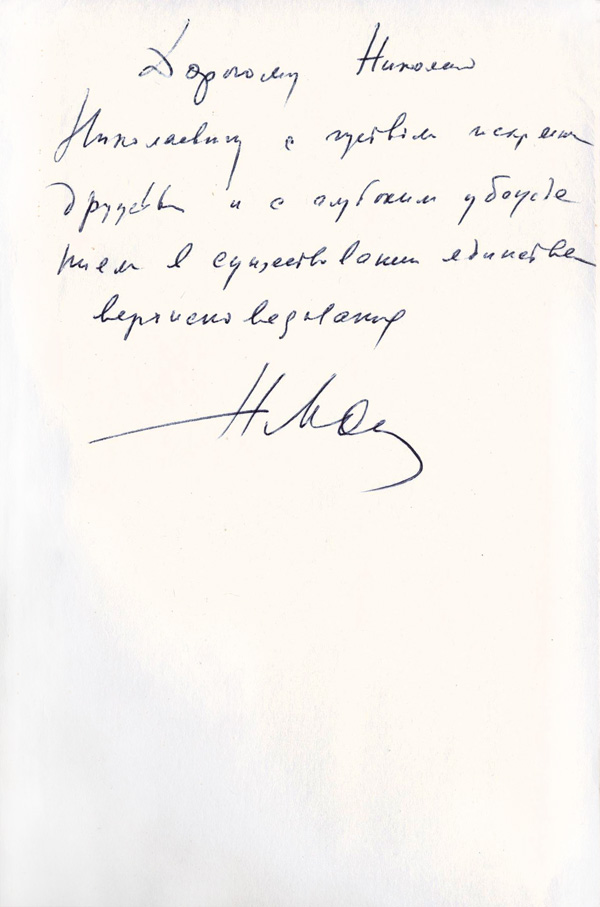 Дорогому Николаю
Николаевичу с чувством искрен
дружбы и с глубоким убежде
нием в существовании единства
вероисповедования